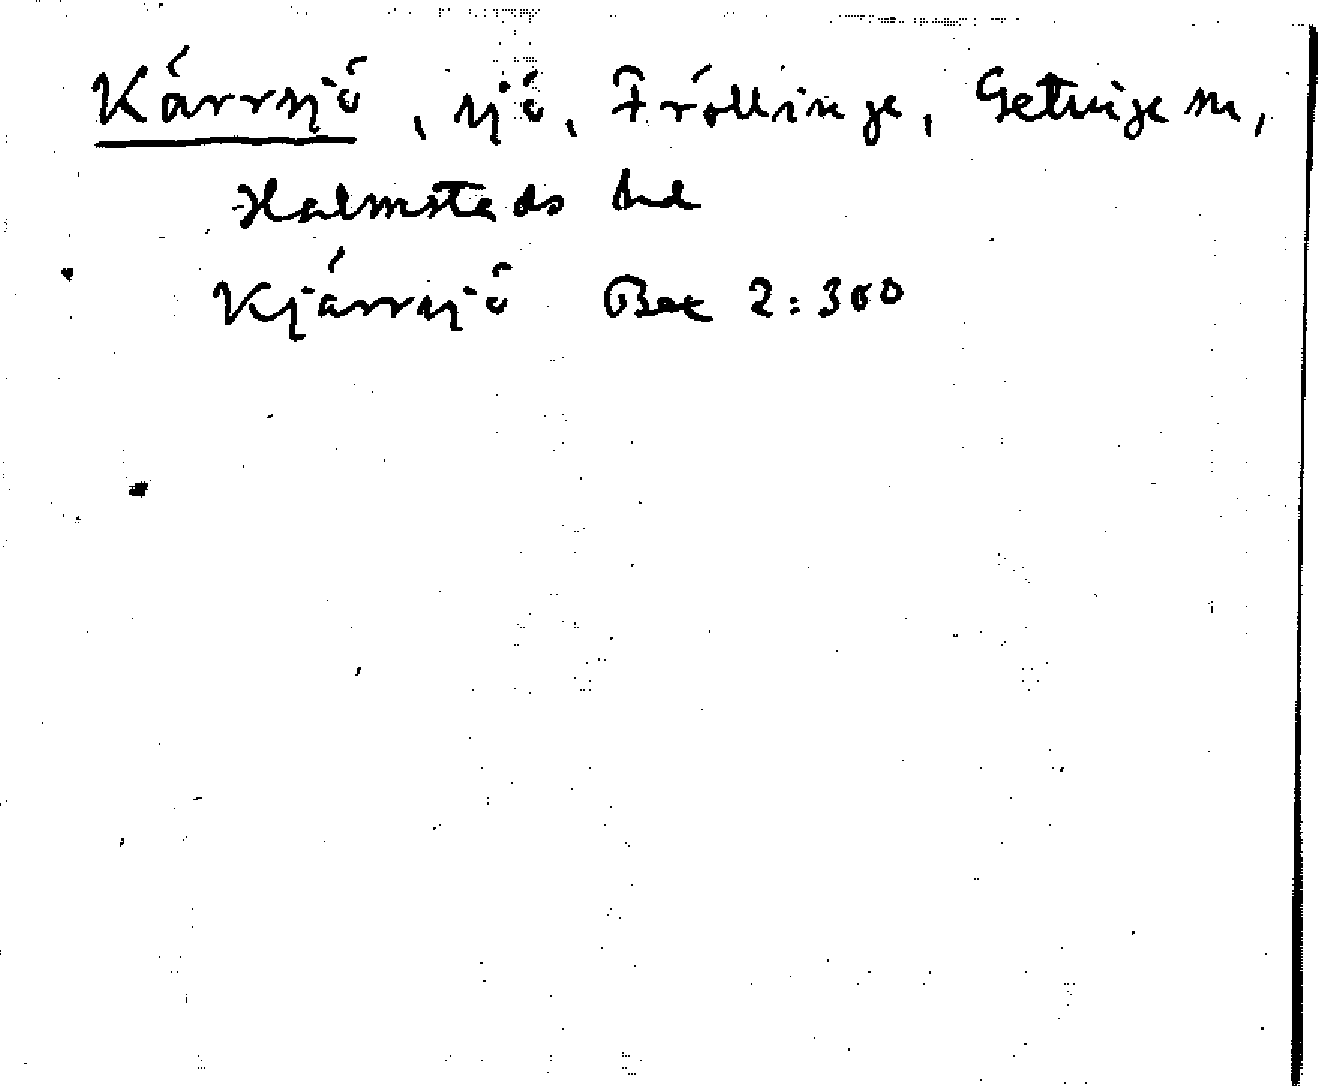 Kärrsjö, sjö, Fröllinge, Getinge sn,
Halmstads hd
Kjärrsjö Bex 2:300